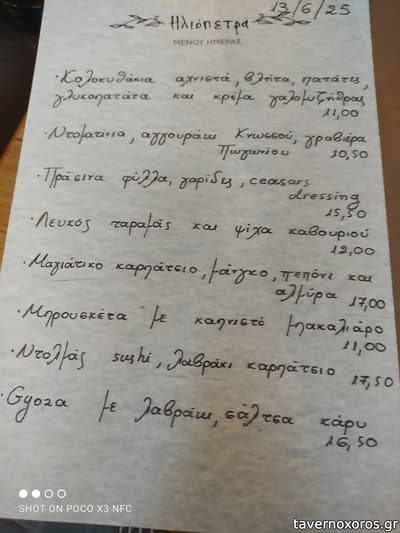 13/6/25
Ηλιόπετρα
ΜΕΝΟΥ ΗΜΕΡΑΣ
· Κολοκυθάκια αχνιστά, βλήτα, πατάτες,
γλυκοπατάτα και κρέμα γαλομυζήθρας
11,00
· Ντοματίνια, αγγουράκι Κνωσσού, γραβιέρα
Πωγωνίου 10,50
· Πράσινα φύλλα, γαρίδες, ceasars
dressing
15,50
· Λευκός ταραμάς και ψίχα καβουριού
12,00
· Μαγιάτικο καρπάτσιο, μάνγκο, πεπόνι και
αλμύρα 17,00
· Μπρουσκέτα με καπνιστό μπακαλιάρο
11,00
· Ντολμάς sushi, λαβράκι καρπάτσιο
17,50
· Gyoza με λαβράκι, σάλτσα κάρυ
16,50
SHOT ON POCO X3 NFC
tavernoxoros.gr